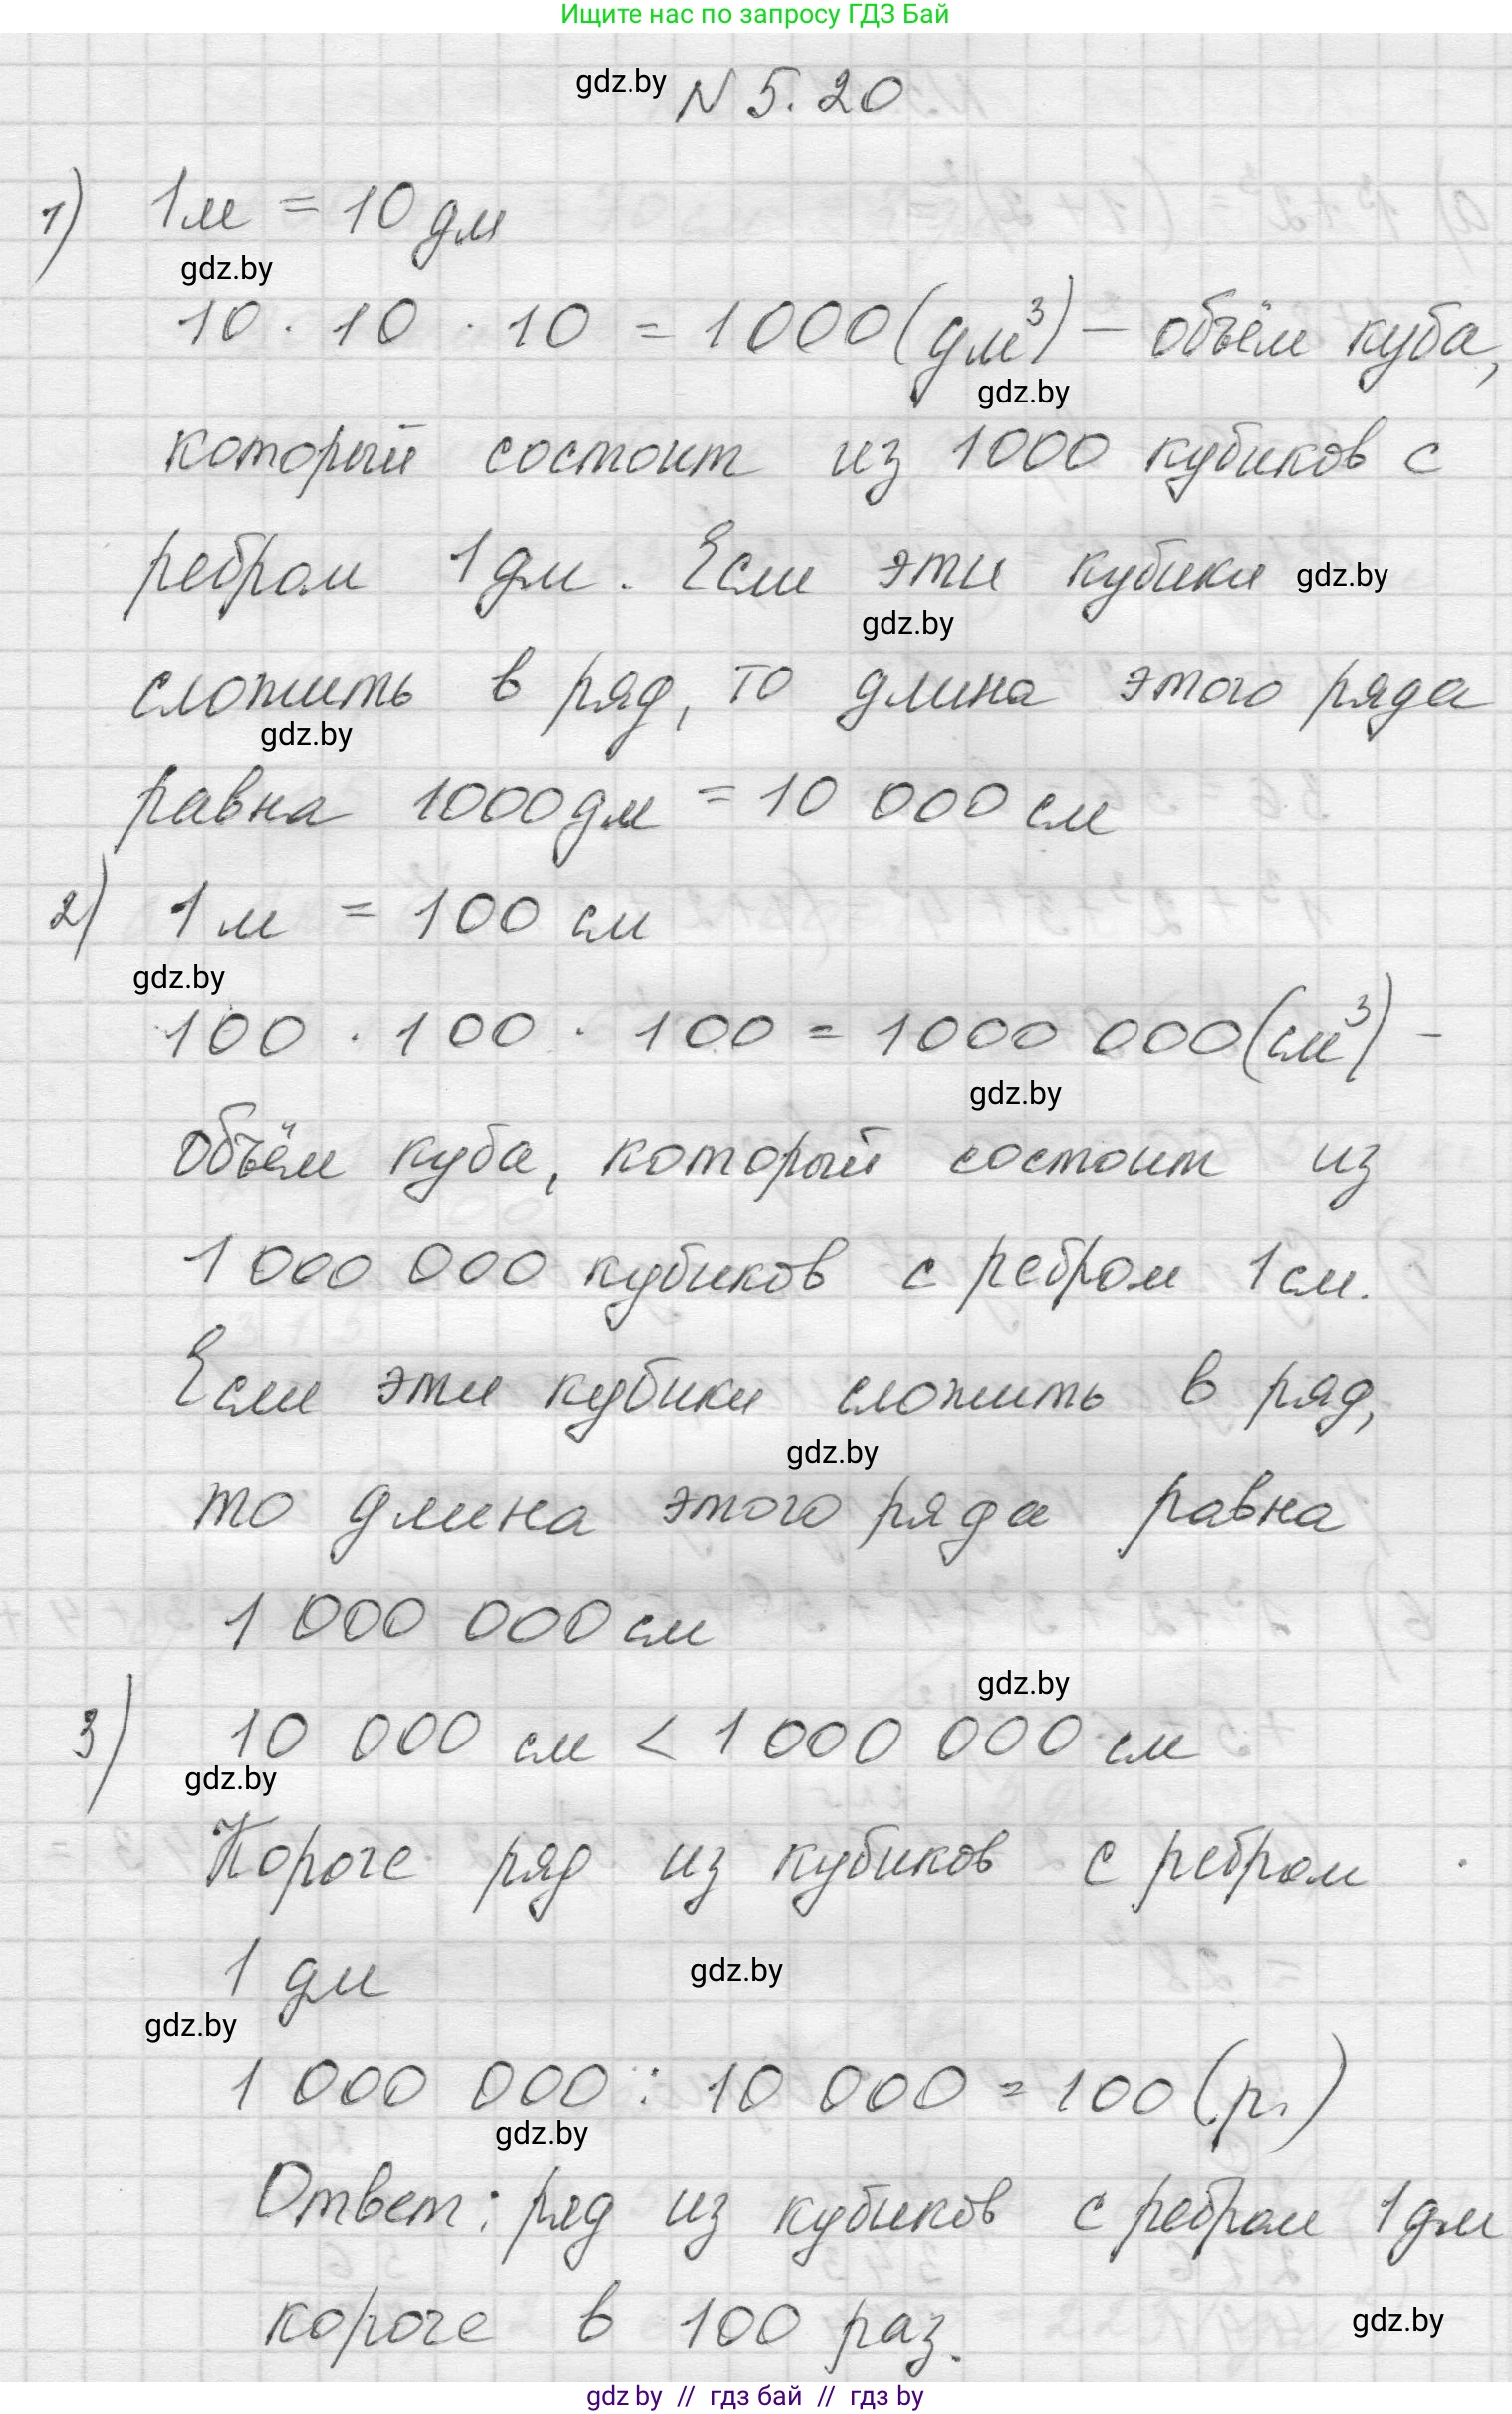 Ищите нас по запросу ГДЗ Бай
gdz.by
N 5. 20
1) 1м = 10 дм
gdz.by
10 · 10 · 10 = 1000 (дм³) – объём куба,
gdz.by
который состоит из 1000 кубиков с
ребром 1 дм. Если эти кубики gdz.by
gdz.by
сложить в ряд, то длина этого ряда
gdz.by
равна 1000 дм = 10 000 см
2) 1 м = 100 см
gdz.by
100 · 100 · 100 = 1000 000 (см³) –
gdz.by
объём куба, который состоит из
1 000 000 кубиков с ребром 1 см.
Если эти кубики сложить в ряд,
gdz.by
то длина этого ряда равна
1 000 000 см
gdz.by
3) 10 000 см < 1 000 000 см
gdz.by
Короче ряд из кубиков с ребром
1 дм
gdz.by
gdz.by
1 000 000 : 10 000 = 100 (р.)
gdz.by
Ответ: ряд из кубиков с ребром 1 дм
короче в 100 раз.
gdz.by
gdz by // гдз бай // гдз by